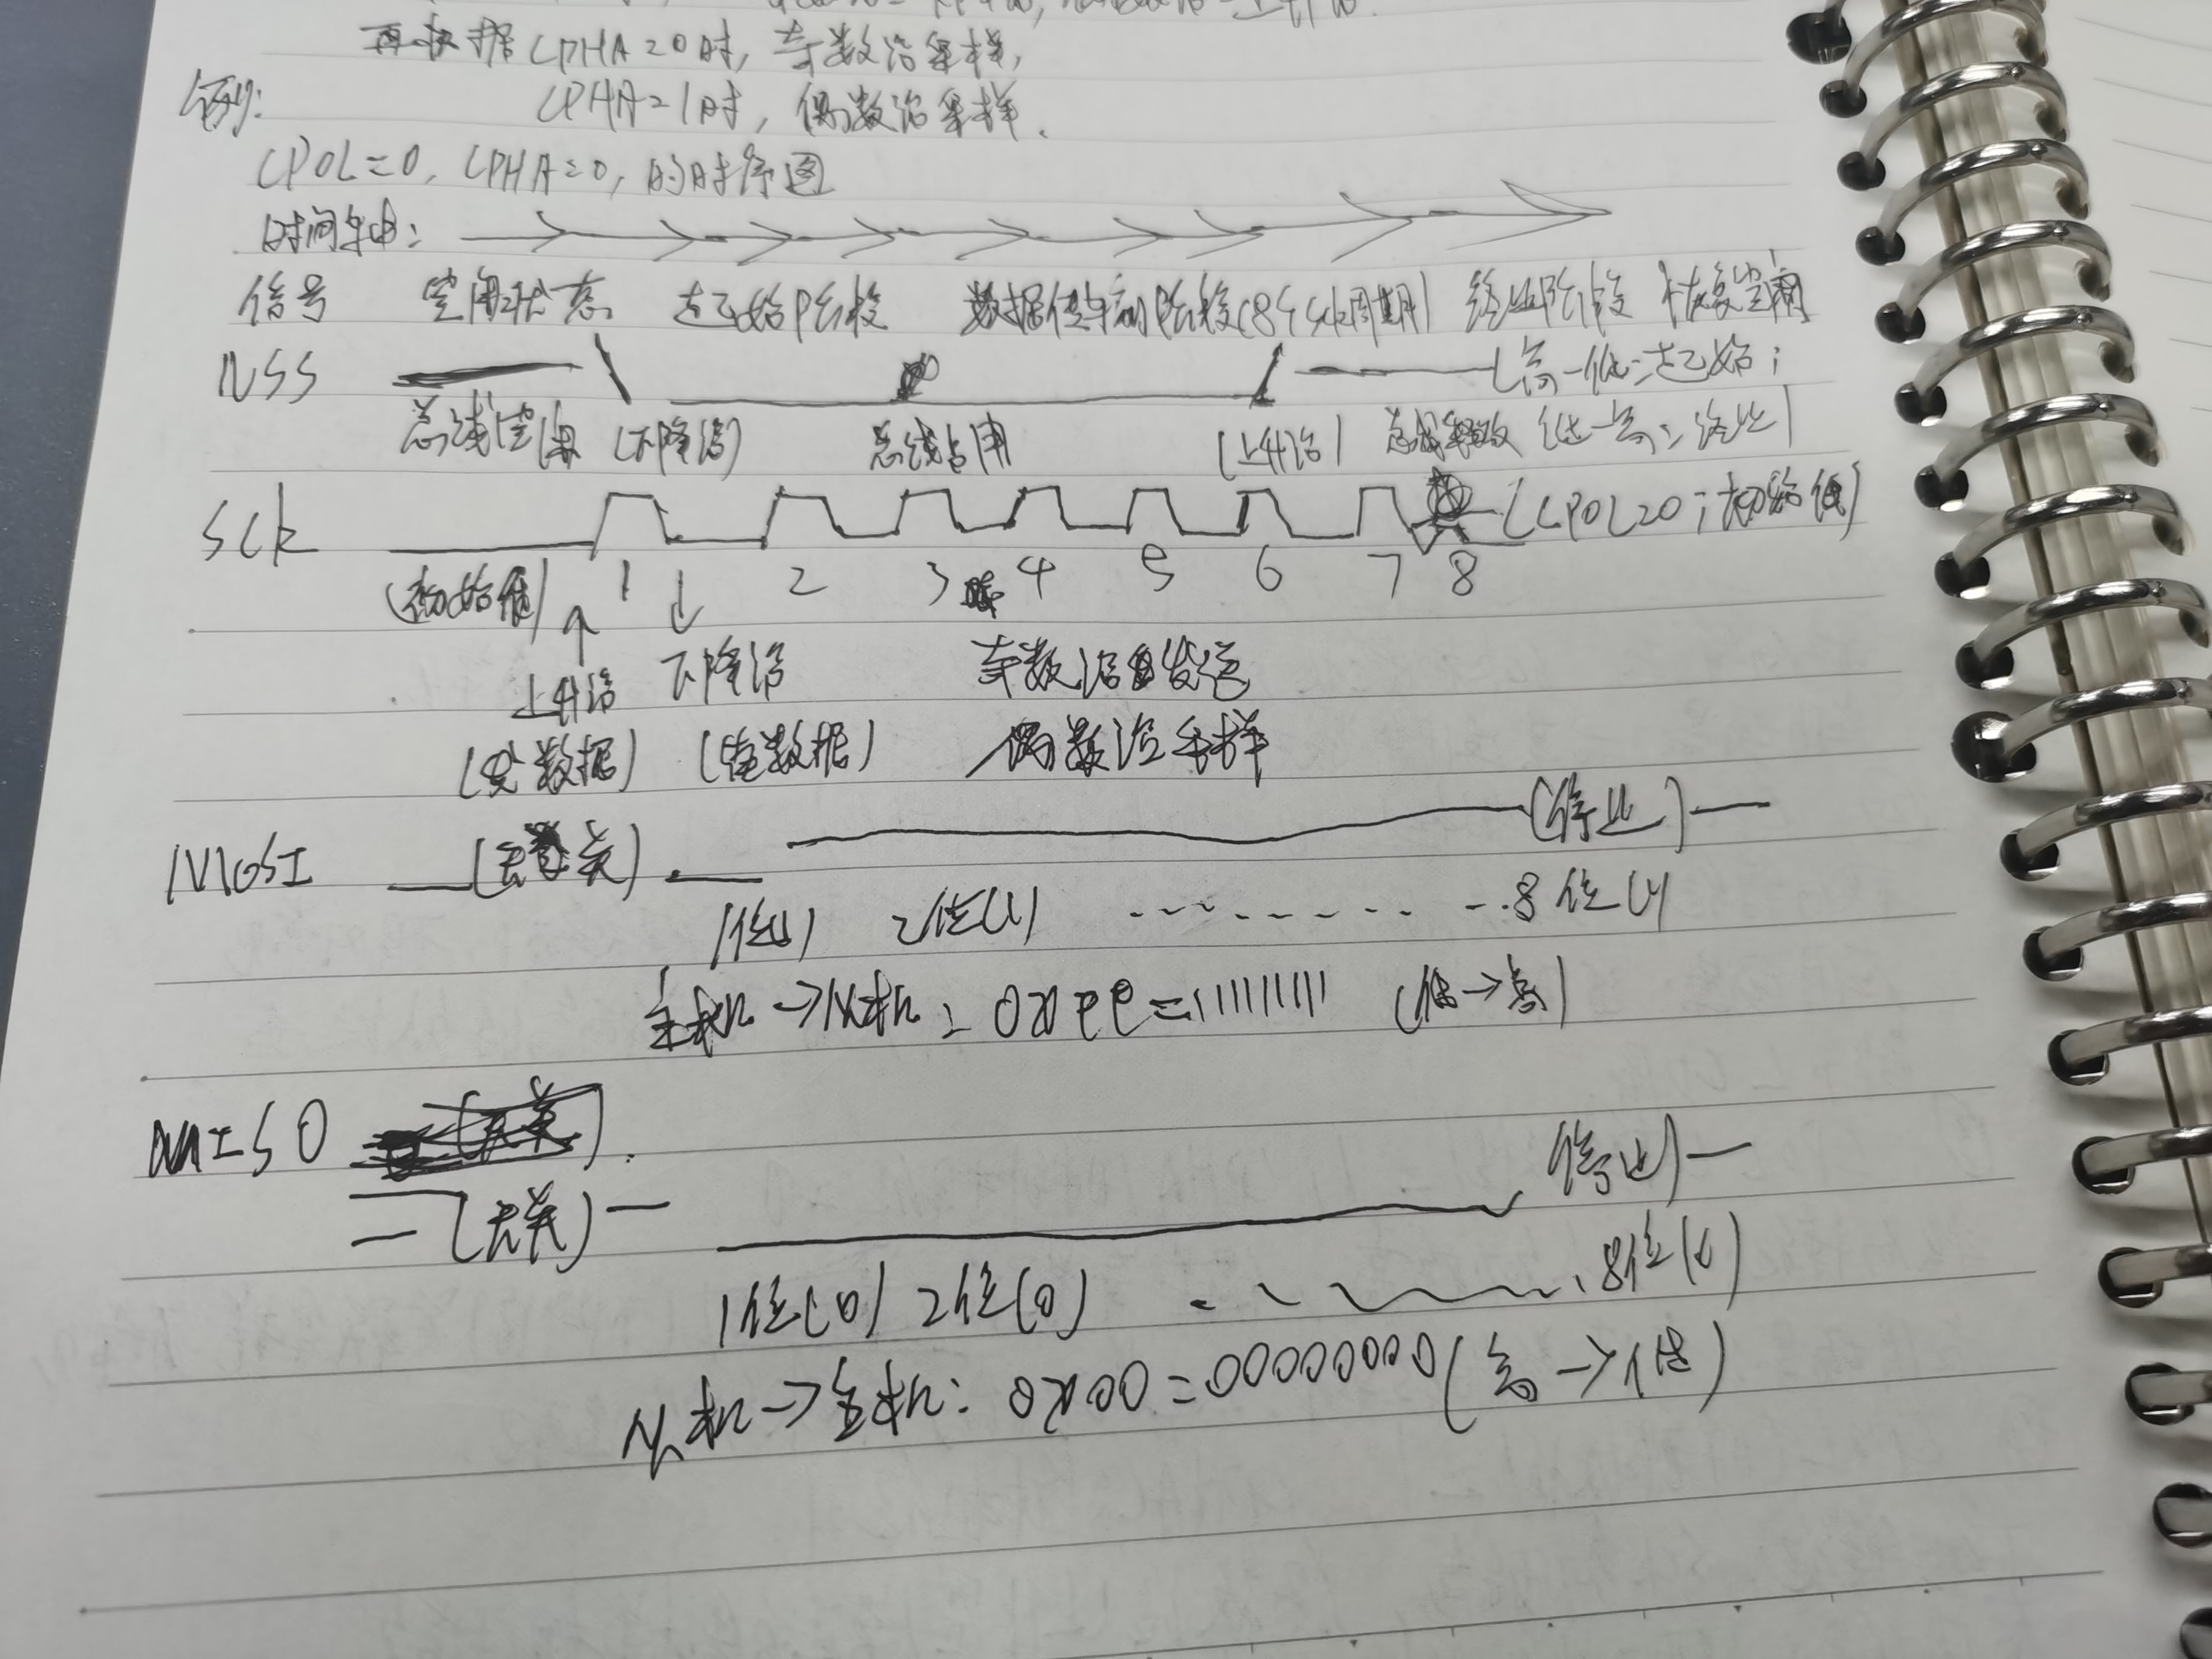 再根据CPHA=0时,奇数沿采样,
例: CPHA=1时,偶数沿采样.
CPOL=0,CPHA=0,的时序图
时间轴:
信号 空闲状态 起始阶段 数据传输阶段(8个sck周期) 终止阶段 恢复空闲
NSS (高-低:起始;
总线空闲 (下降沿) 总线占用 (上升沿) 总线释放 低-高:终止)
SCk (CPOL=0;初始低)
(初始低) 1 2 3 4 5 6 7 8
↑ ↓
上升沿 下降沿 奇数沿发送
数据) 数据) 偶数沿采样
MOSI (无关) (停止)
1位(1) 2位(1) 8位(1)
主机→从机: (低→高)
MISO
(无关) 停止)
1位(0) 2位(0) 8位(0)
从机→主机: 0x00=00000000(高→低)